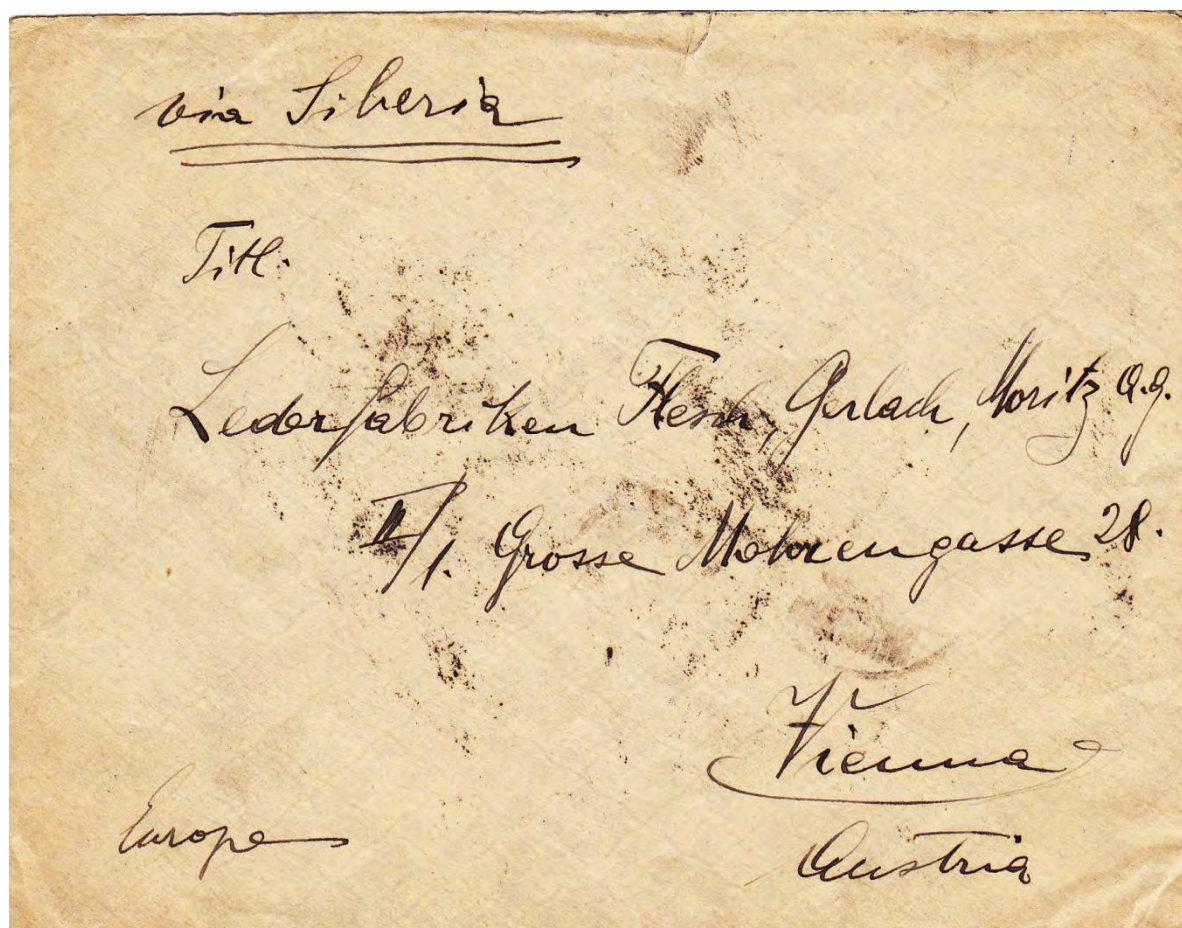 via Siberia
Titl.
Lederfabriken Flesch, Gerlach, Moritz A.g.
II/1. Grosse Mohrengasse 28.
Vienna
Europe
Austria